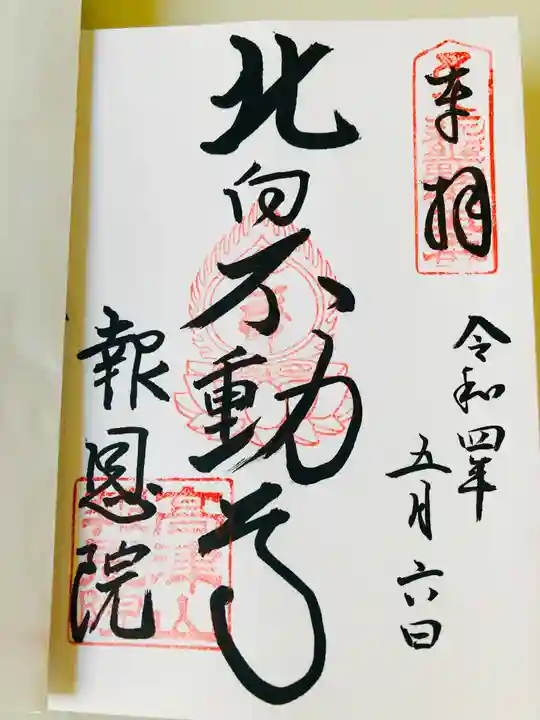 奉拝
令和四年
五月六日
北向不動尊
報恩院